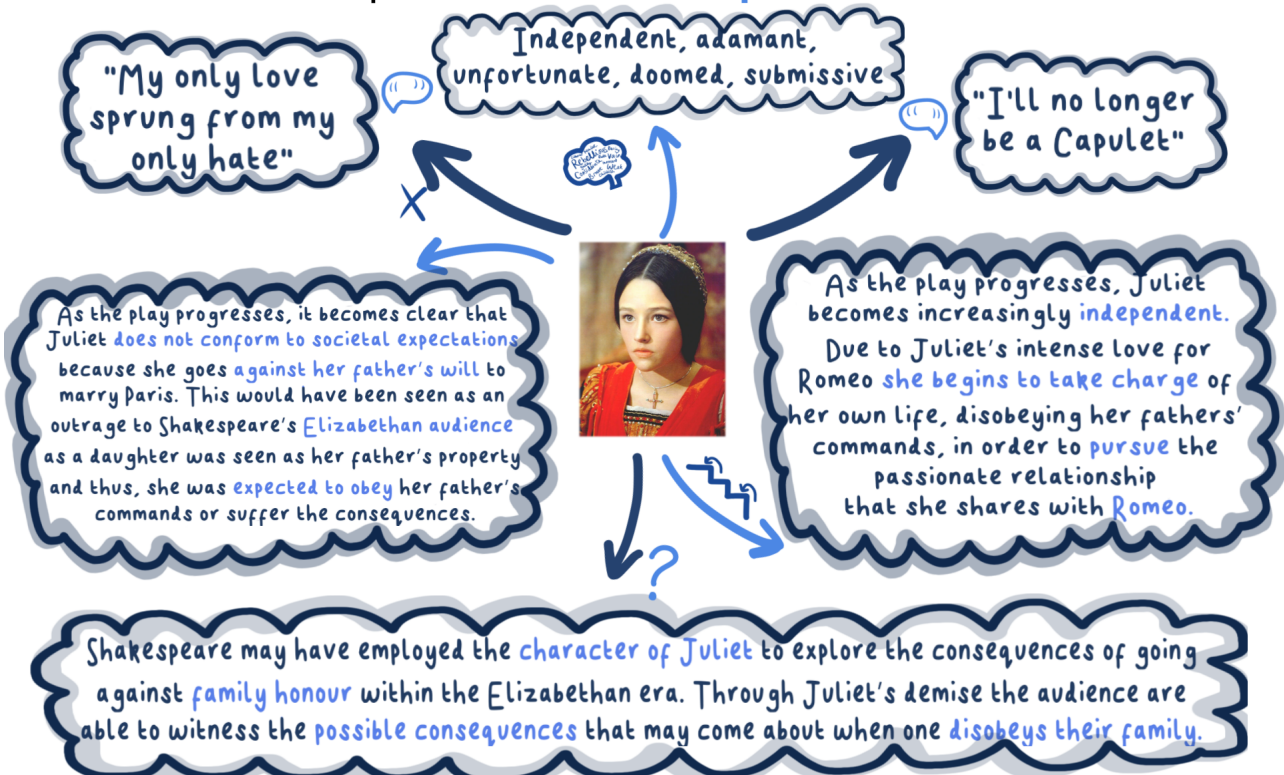 Independent, adamant,
unfortunate, doomed, submissive
"My only love
sprung from my
only hate"
"I'll no longer
be a Capulet"
As the play progresses, it becomes clear that
Juliet does not conform to societal expectations
because she goes against her father's will to
marry Paris. This would have been seen as an
outrage to Shakespeare's Elizabethan audience
as a daughter was seen as her father's property
and thus, she was expected to obey her father's
commands or suffer the consequences.
As the play progresses, Juliet
becomes increasingly independent.
Due to Juliet's intense love for
Romeo she begins to take charge of
her own life, disobeying her fathers'
commands, in order to pursue the
passionate relationship
that she shares with Romeo.
?
Shakespeare may have employed the character of Juliet to explore the consequences of going
against family honour within the Elizabethan era. Through Juliet's demise the audience are
able to witness the possible consequences that may come about when one disobeys their family.